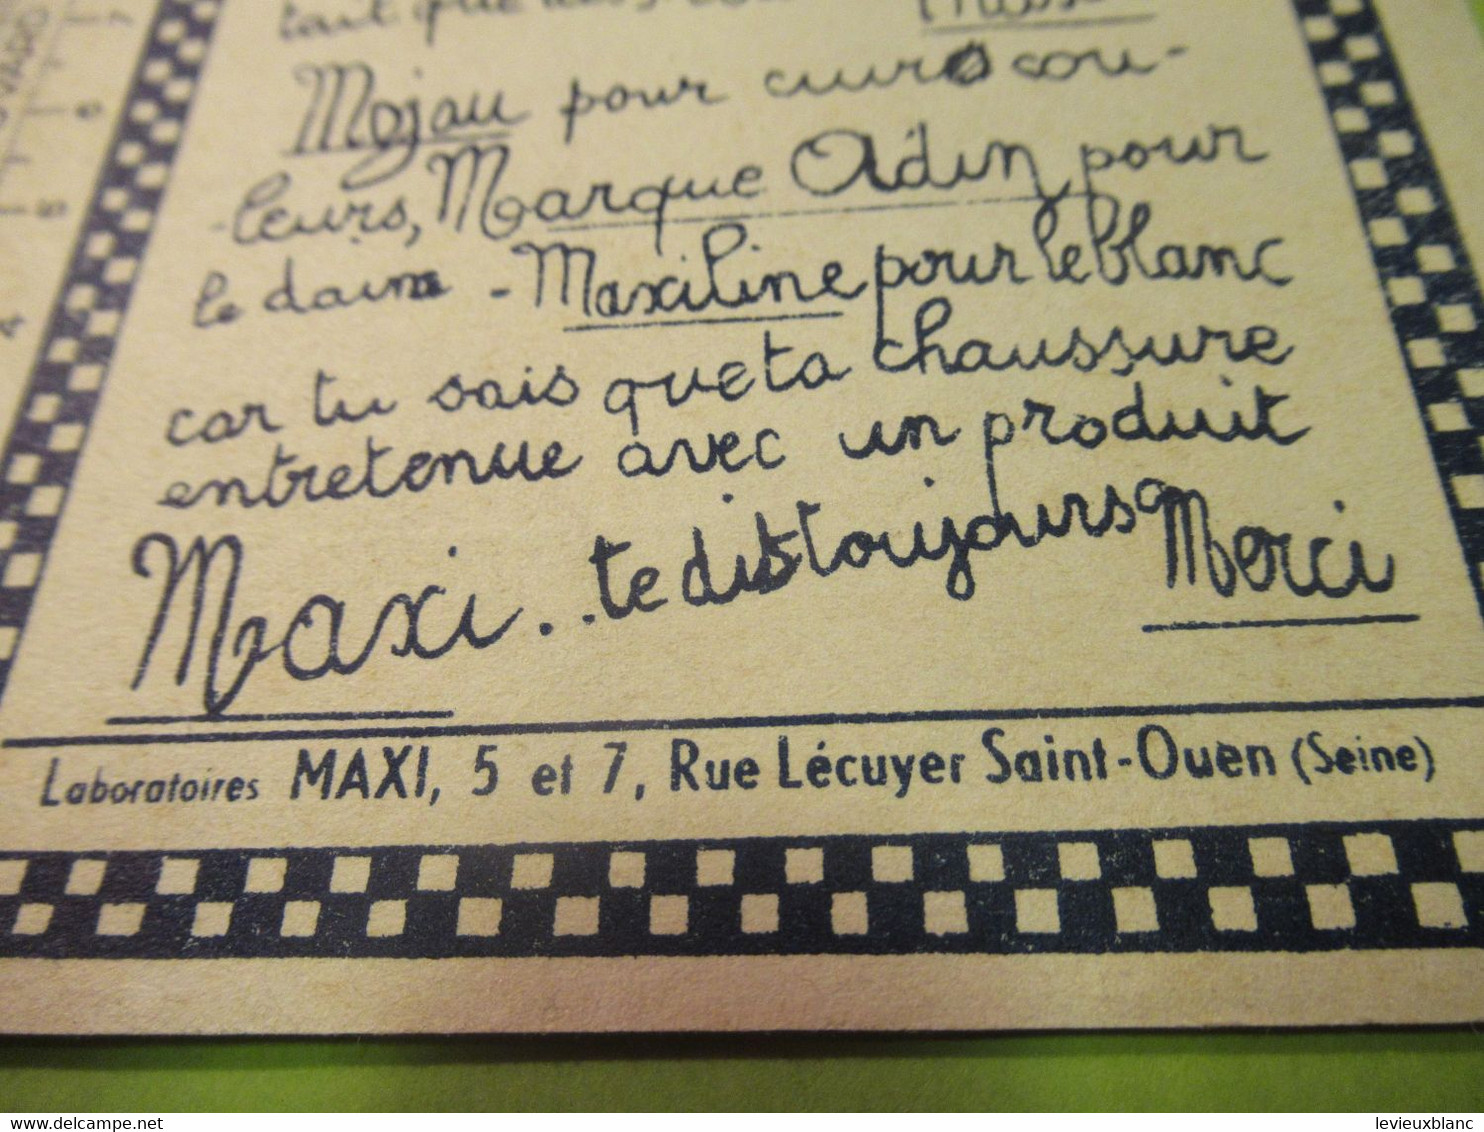 tait que
Mojau pour cuirs cou-
-leurs, Marque Adin pour
le daim - Maxiline pour le blanc
car tu sais que ta chaussure
entretenue avec un produit
Maxi... te dit toujours
Merci
Laboratoires MAXI, 5 et 7, Rue Lécuyer Saint-Ouen (Seine)
4
delcampe.net
levieuxblanc